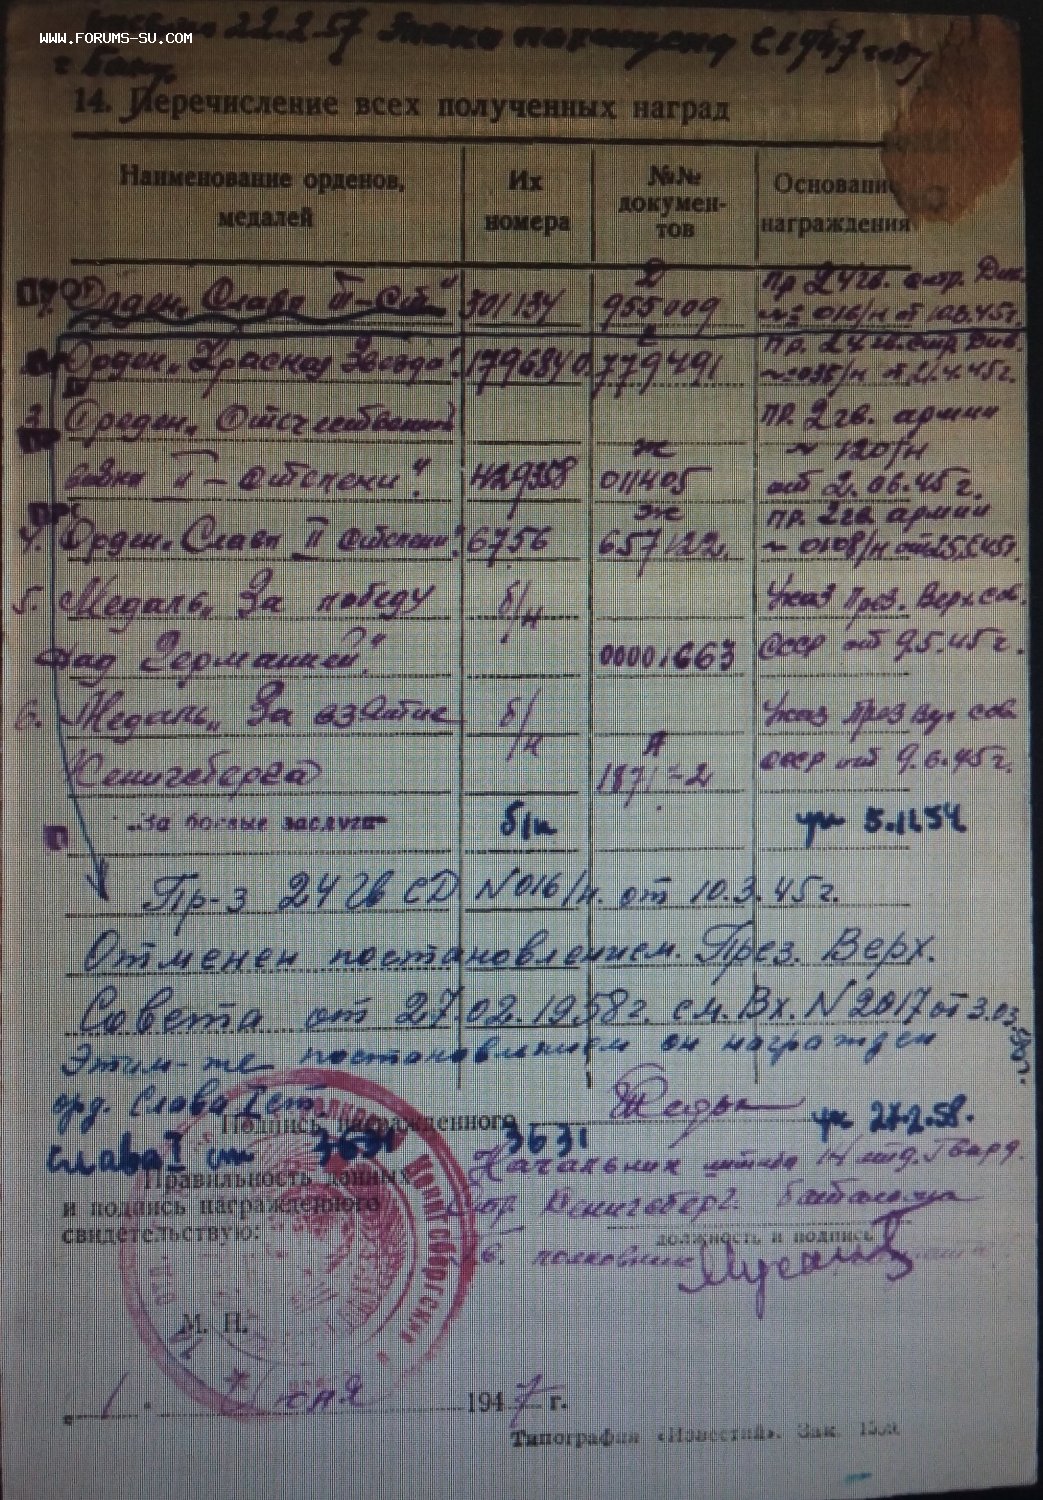 22.2.57 Знаки похищены в 1947 году
WWW.FORUMS-SU.COM
г. Баку.
14. Перечисление всех полученных наград
Наименование орденов, медалей
Их номера
№№ документов
Основание награждения
Орден „Слава III - ст." 301134 Д 955009 Пр 24 гв. стр. Див. № 016/н от 10.3.45г.
Орден „Красная Звезда" 1796840 Е 779491 Пр. 24 гв. стр. Див. № 035/н от 21.4.45г.
3. Орден „Отечественной пр. 2 гв. армии
войны II - степени". 429358 Ж 011405 № 120/н от 2.06.45г.
4. Орден „Слава II степени". 6756 Ж 657122. пр. 2 гв. армии
5. Медаль „За победу б/н Указ През. Верх сов.
над Германией". 0000.663 СССР от 9.5.45г.
6. Медаль „За взятие б/н Указ През Вер. сов.
Кенигсберга А СССР от 9.6.45г.
„За боевые заслуги б/н ук 5.11.54
Пр-з 24 Гв СД N 016/н. от 10.3.45г.
Отменен постановлением През. Верх.
Совета от 27.02.1958г. см. Вх. N 2017 от 3.03.58г.
Этим-же постановлением он награжден
орд. Слава I ст.
Подпись награжденного
ук 27.2.58.
Слава I ст 3631 3631
Начальник штаба 14 отд. Гвард.
Правильность данных
и подпись награжденного
свидетельствую:
Кенигсберг. батальона
должность и подпись
Гв. полковник
Кенигсбергский
М. П.
„1" Июня 1947 г.
Типография «Известий». Зак.